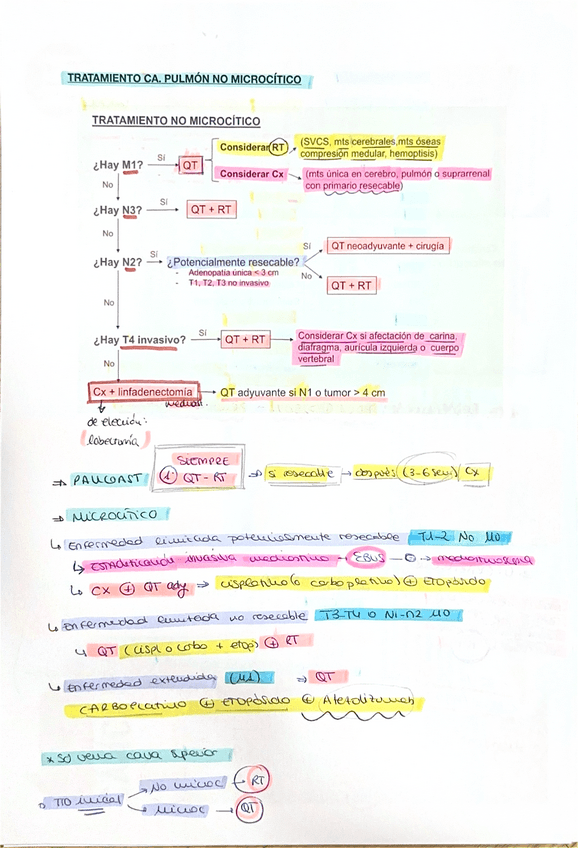 TRATAMIENTO CA. PULMÓN NO MICROCÍTICO
TRATAMIENTO NO MICROCÍTICO
¿Hay M1? Sí QT Considerar RT (SVCS, mts cerebrales, mts óseas
compresión medular, hemoptisis)
Considerar Cx (mts única en cerebro, pulmón o suprarrenal
con primario resecable)
No
¿Hay N3? Sí QT + RT
No
¿Hay N2? Sí ¿Potencialmente resecable? Sí QT neoadyuvante + cirugía
- Adenopatía única < 3 cm
- T1, T2, T3 no invasivo
No QT + RT
No
¿Hay T4 invasivo? Sí QT + RT Considerar Cx si afectación de carina,
diafragma, aurícula izquierda o cuerpo
vertebral
No
Cx + linfadenectomía QT adyuvante si N1 o tumor > 4 cm
medias.
de elección:
lobectomía
⇒ PANCOAST SIEMPRE
1º QT - RT ⇒ si resecable → después (3-6 sem) Cx
⇒ MICROCÍTICO
↳ Enfermedad limitada potencialmente resecable T1-2 N0 M0
↳ Estadificación invasiva mediastino → EBUS → ⊖ → mediastinoscopia
↳ CX ⊕ QT ady ⇒ cisplatino (o carboplatino) ⊕ etopósido
↳ Enfermedad limitada no resecable T3-T4 o N1-N2 M0
↳ QT (cispl o carbo + etop) ⊕ RT
↳ Enfermedad extendida (M1) ⇒ QT
CARBOplatino ⊕ etopósido ⊕ Atezolizumab
* Sd vena cava superior
⇒ TTO inicial → No microc → RT
→ microc → QT